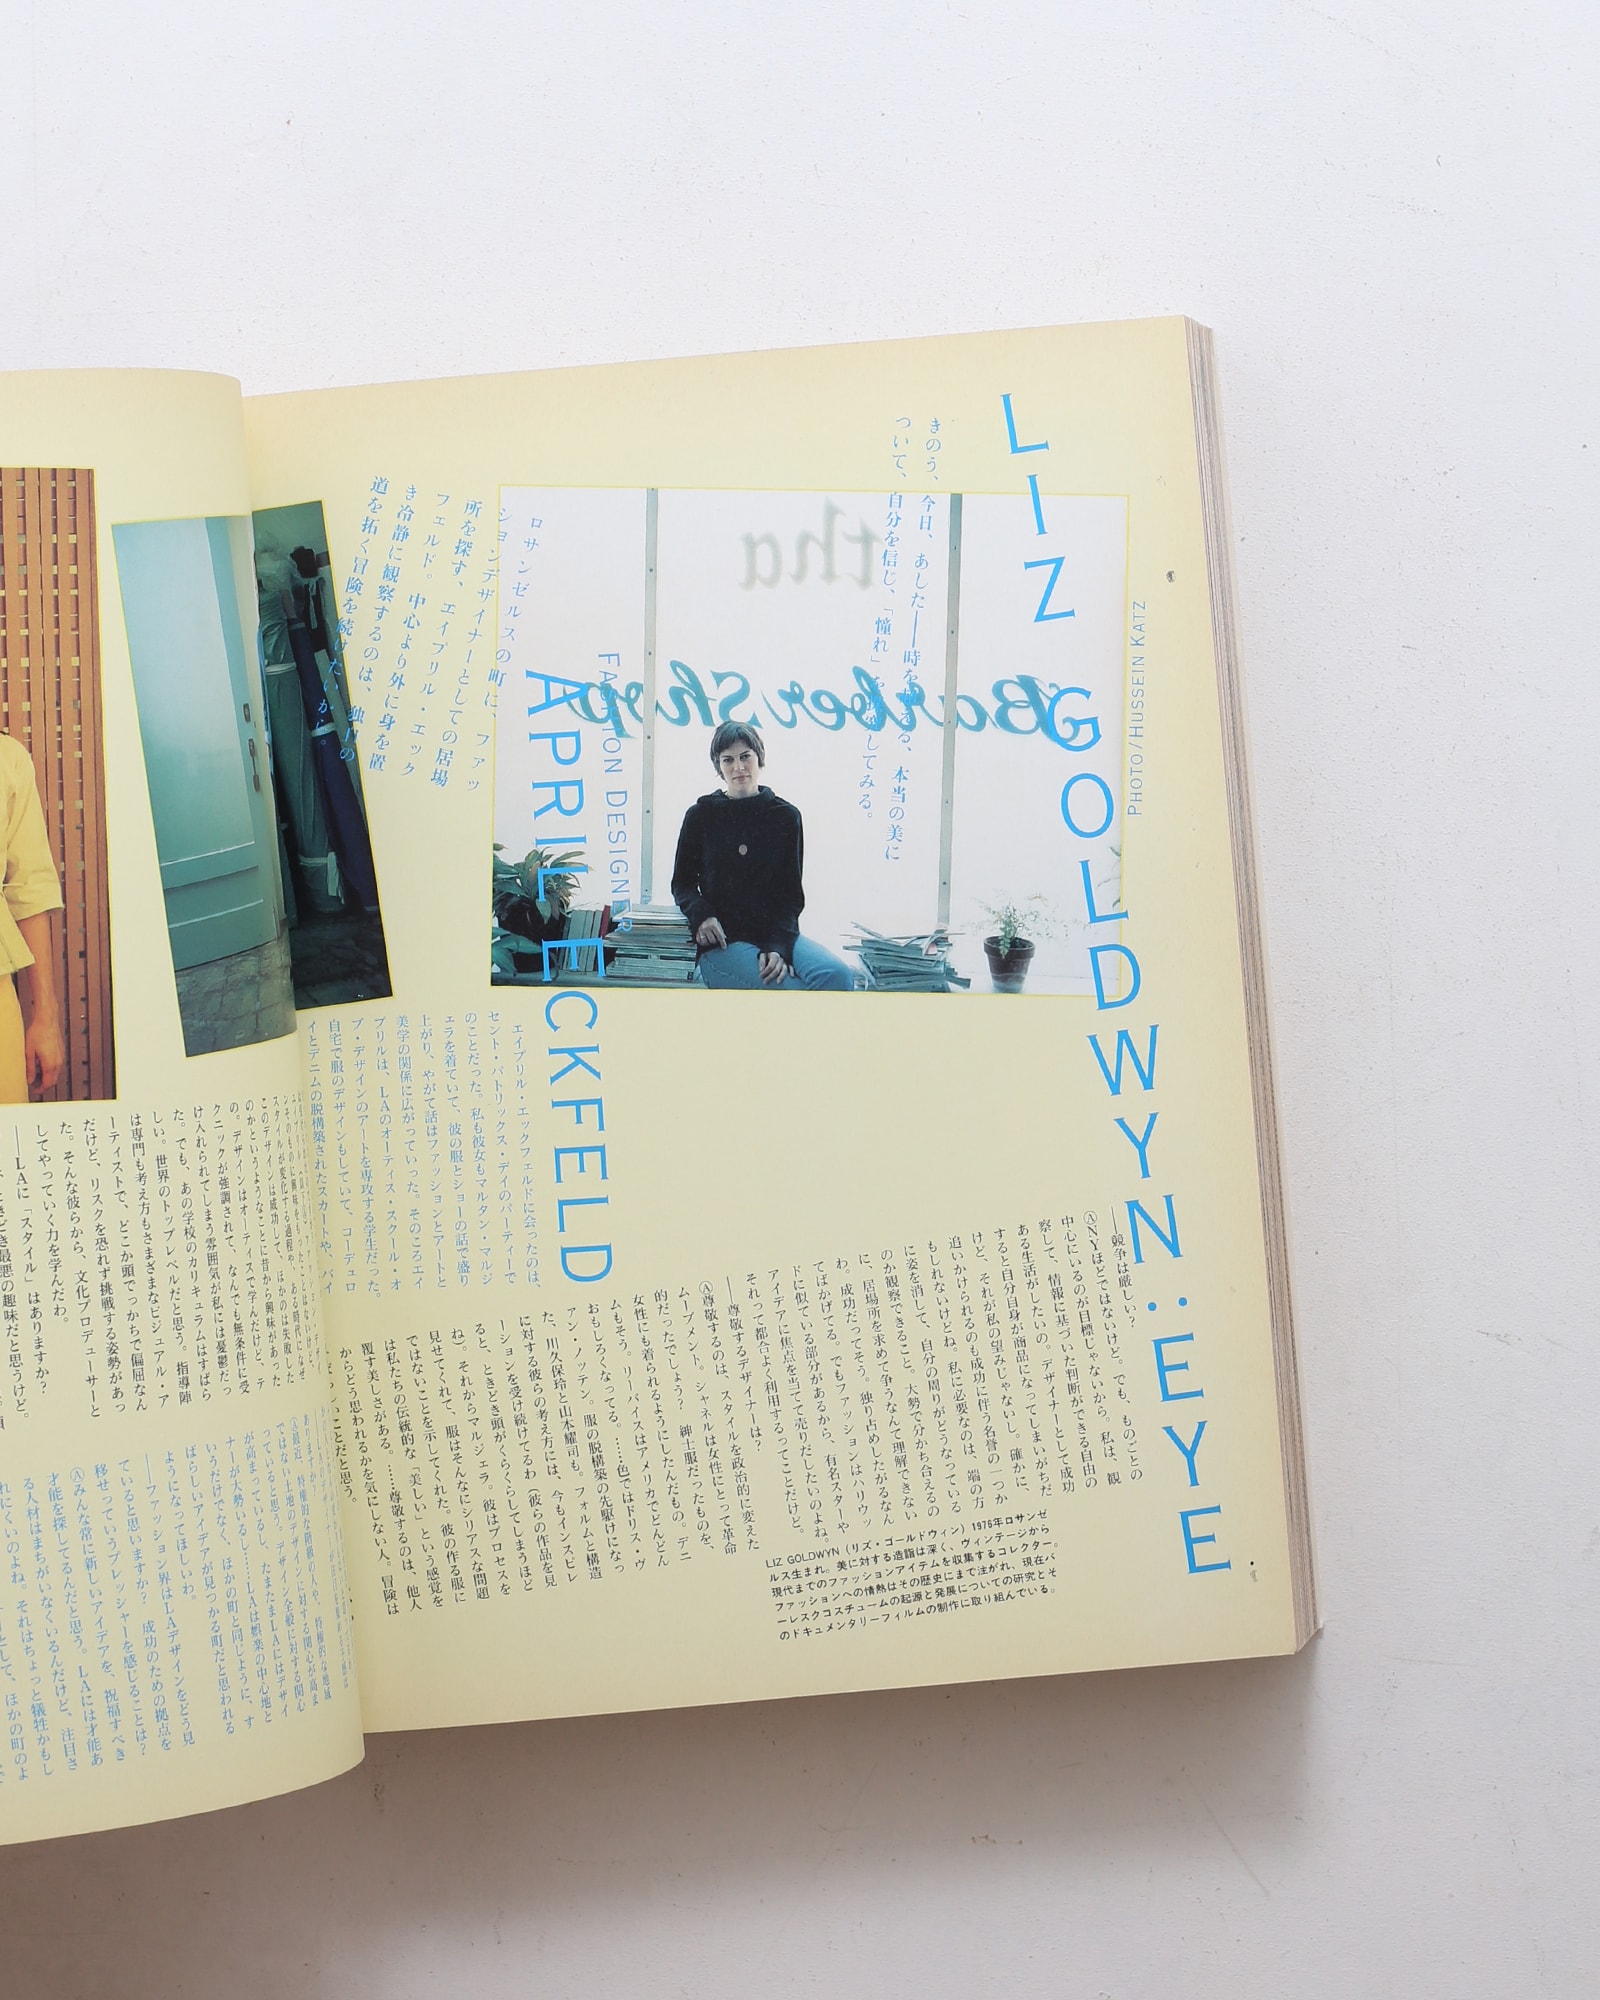 LIZ GOLDWYN:EYE
PHOTO/HUSSEIN KATZ
きのう、今日、あした――時を
る、本当の美に
ついて、自分を信じ、「憧れ」を
してみる。
FASHION DESIGNER
APRIL ECKFELD
ロサンゼルスの町に、ファッ
ションデザイナーとしての居場
所を探す、エイプリル・エック
フェルド。中心より外に身を置
き冷静に観察するのは、独自の
道を拓く冒険を続けたいから。
エイプリル・エックフェルドに会ったのは、
セント・パトリックス・デイのパーティーで
のことだった。私も彼女もマルタン・マルジ
ェラを着ていて、彼の服とショーの話で盛り
上がり、やがて話はファッションとアートと
美学の関係に広がっていった。そのころエイ
プリルは、LAのオーティス・スクール・オ
ブ・デザインのアートを専攻する学生だった。
自宅で服のデザインもしていて、コーデュロ
イとデニムの脱構築されたスカートや、パイ
――競争は厳しい?
ⒶNYほどではないけど。でも、ものごとの
中心にいるのが目標じゃないから。私は、観
察して、情報に基づいた判断ができる自由の
ある生活がしたいの。デザイナーとして成功
すると自分自身が商品になってしまいがちだ
けど、それが私の望みじゃないし。確かに、
追いかけられるのも成功に伴う名誉の一つか
もしれないけどね。私に必要なのは、端の方
に姿を消して、自分の周りがどうなっている
のか観察できること。大勢で分かち合えるの
に、居場所を求めて争うなんて理解できない
わ。成功だってそう。独り占めしたがるなん
てばかげてる。でもファッションはハリウッ
ドに似ている部分があるから、有名スターや
アイデアに焦点を当てて売りだしたいのよね。
それって都合よく利用するってことだけど。
――尊敬するデザイナーは?
Ⓐ尊敬するのは、スタイルを政治的に変えた
ムーブメント。シャネルは女性にとって革命
的だったでしょう? 紳士服だったものを、
女性にも着られるようにしたんだもの。デニ
ムもそう。リーバイスはアメリカでどんどん
おもしろくなってる。……色ではドリス・ヴ
ァン・ノッテン。服の脱構築の先駆けになっ
た、川久保玲と山本耀司も。フォルムと構造
に対する彼らの考え方には、今もインスピレ
ーションを受け続けてるわ(彼らの作品を見
ると、ときどき頭がくらくらしてしまうほど
ね)。それからマルジェラ。彼はプロセスを
見せてくれて、服はそんなにシリアスな問題
ではないことを示してくれた。彼の作る服に
は私たちの伝統的な「美しい」という感覚を
覆す美しさがある。……尊敬するのは、他人
からどう思われるかを気にしない人。冒険は
いことだと思う。
LIZ GOLDWYN(リズ・ゴールドウィン)1976年ロサンゼ
ルス生まれ。美に対する造詣は深く、ヴィンテージから
現代までのファッションアイテムを収集するコレクター。
ファッションへの情熱はその歴史にまで注がれ、現在バ
ーレスクコスチュームの起源と発展についての研究とそ
のドキュメンタリーフィルムの制作に取り組んでいる。
スタイルが変化する過程や、ある時代になぜ
このデザインは成功して、ほかのは失敗した
のかというようなことに昔から興味があった
の。デザインはオーティスで学んだけど、テ
クニックが強調されて、なんでも無条件に受
け入れられてしまう雰囲気が私には憂鬱だっ
た。でも、あの学校のカリキュラムはすばら
しい。世界のトップレベルだと思う。指導陣
は専門も考え方もさまざまなビジュアル・ア
ーティストで、どこか頭でっかちで偏屈なん
だけど、リスクを恐れず挑戦する姿勢があっ
た。そんな彼らから、文化プロデューサーと
してやっていく力を学んだわ。
――LAに「スタイル」はありますか?
ときどき最悪の趣味だと思うけど。
Ⓐ最近、特権的な階級の人や、特権的な地域
ではない土地のデザインに対する関心が高ま
っていると思う。デザイン全般に対する関心
が高まっているし、たまたまLAにはデザイ
ナーが大勢いるし……LAは娯楽の中心地と
いうだけでなく、ほかの町と同じように、す
ばらしいアイデアが見つかる町だと思われる
ようになってほしいわ。
――ファッション界はLAデザインをどう見
ていると思いますか? 成功のための拠点を
移せっていうプレッシャーを感じることは?
Ⓐみんな常に新しいアイデアを、祝福すべき
才能を探してるんだと思う。LAには才能あ
る人材はまちがいなくいるんだけど、注目さ
れにくいのよね。それはちょっと犠牲かもし
として、ほかの町のよ
tha
Barber Shop